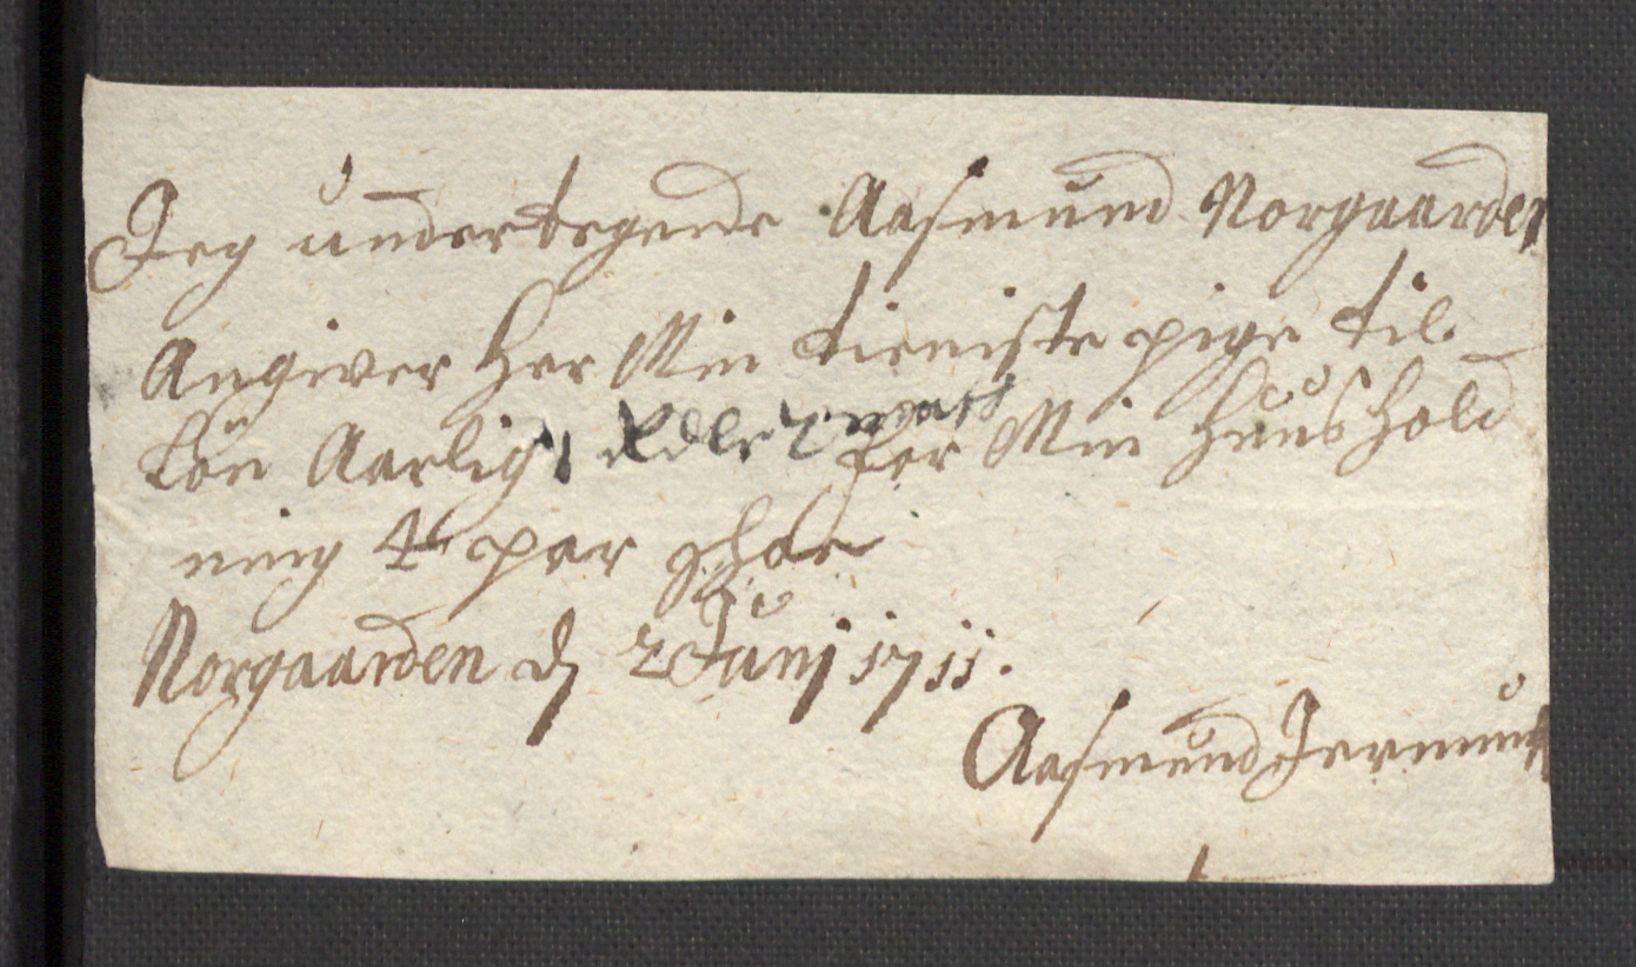 Jeg undertegende Aasmund Norgaarden
Angiver Her Min tieniste pige til
Lön Aarlig 1 Rdlr 2 mark for Min Huus Hold
ning 4 par Schoe
Norgaarden d 2 Junj 1711.
Aasmund